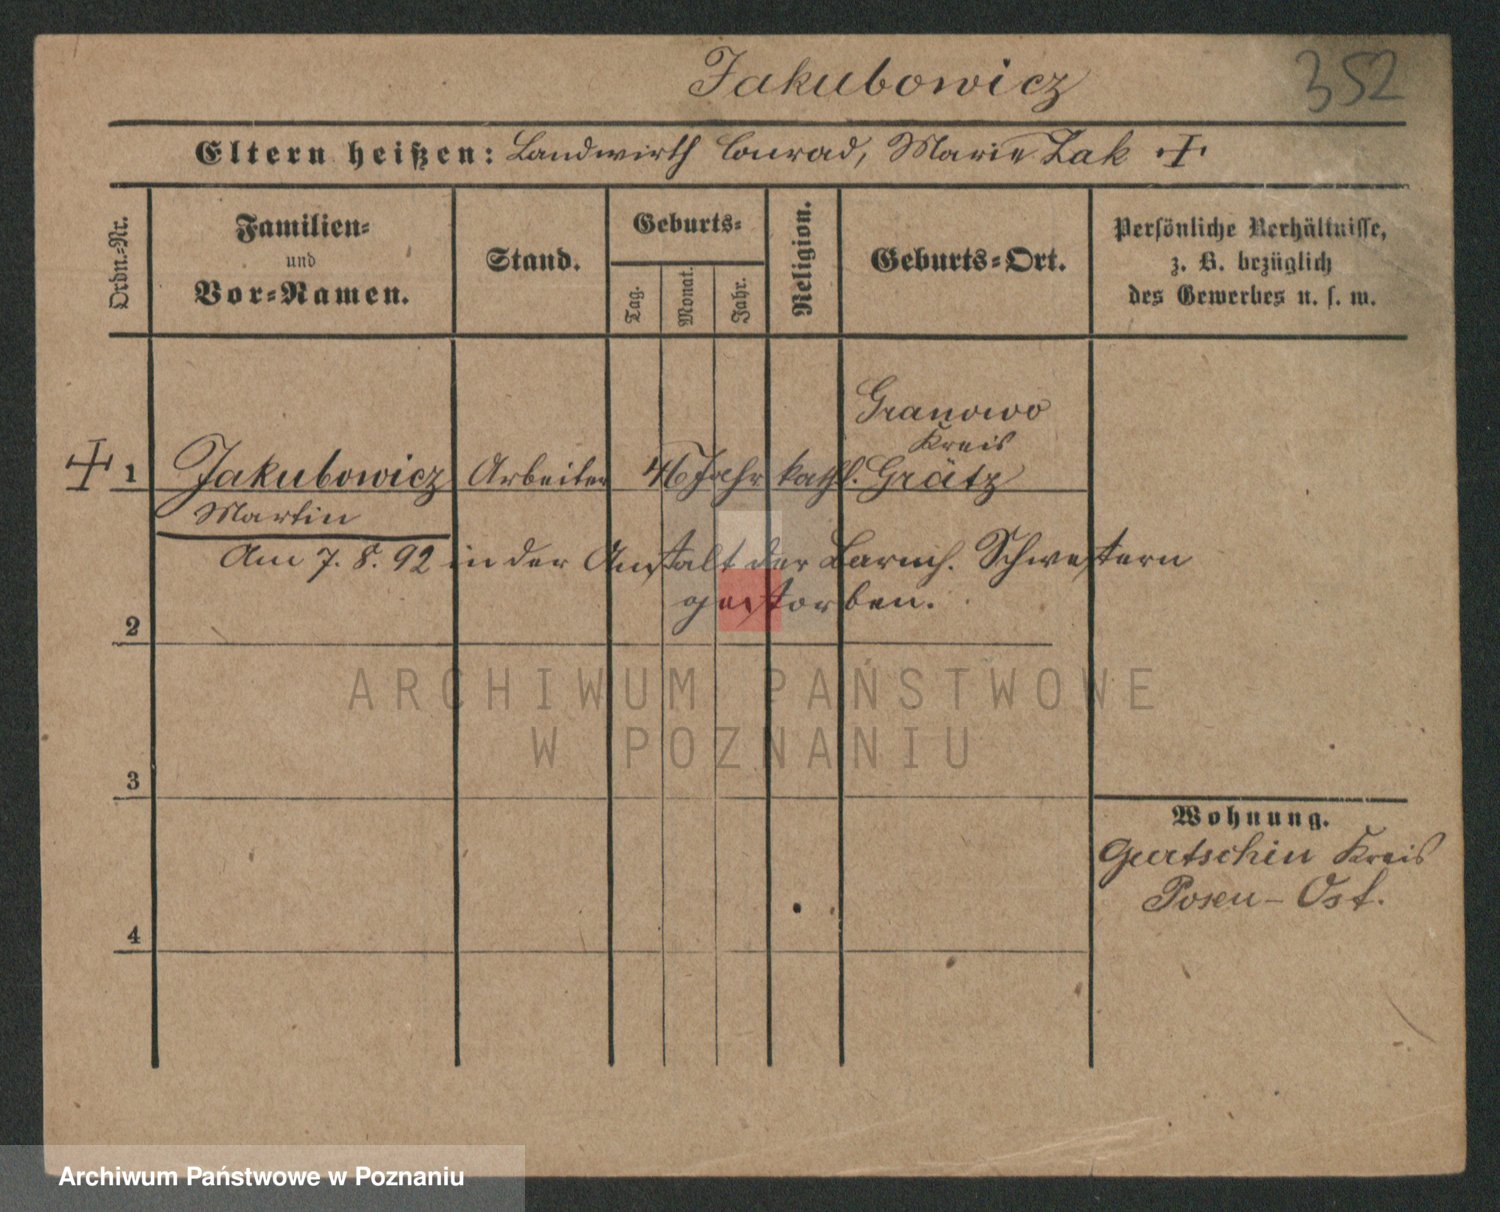 Jakubowicz 352
Eltern heißen: Landwirth Conrad, Marie Zak +
Ordn.-Nr.
Familien-
und
Vor-Namen.
Stand.
Geburts-
Tag.
Monat.
Jahr.
Religion.
Geburts-Ort.
Persönliche Verhältnisse,
z. B. bezüglich
des Gewerbes u. s. w.
Granowo
Kreis
+ 1 Jakubowicz Arbeiter 46 Jahr kathl. Grätz
Martin
Am 7. 8. 92 in der Anstalt der Barmh. Schwestern
gestorben.
2
ARCHIWUM PAŃSTWOWE
W POZNANIU
3
Wohnung.
Gurtschin Kreis
Posen-Ost.
4
Archiwum Państwowe w Poznaniu